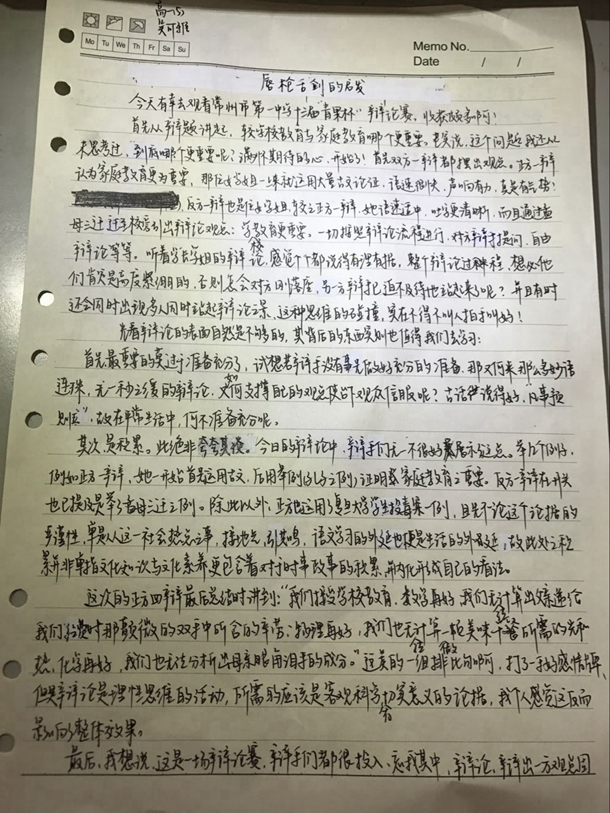 高一(5)
Memo No.
Mo Tu We Th Fr Sa Su
Date / /
唇枪舌剑的启发
今天有幸去观看常州市第一中学十三届“青果杯”辩论赛，收获颇多啊！
首先从辩题讲起，较学校教育与家庭教育哪个更重要。老实说，这个问题我还从
未思考过，到底哪个更重要呢？满怀期待的心，开始了！首先双方一辩都摆出观点。正方一辩
认为家庭教育更为重要，那位好学姐一来就运用大量古文论证，语速很快，声响有力，真是有气势！
反方一辩也是位学姐，较之正方一辩，她语速适中，吐字更清晰，而且通过孟
母三迁之择校旁引出辩论观点：学校教育更重要，一切按照辩论流程进行，对方辩手提问，自由
辩论等等。听着学长学姐的辩论，感觉个个都说得有理有据，整个辩论过程，想必他
们肯定是高度紧绷的，否则怎会对方刚落座，另一方辩手已迫不及待地站起来了呢？并且有时
还会同时出现多人同时站起辩论之景，这种思维的碰撞，实在不得不叫人拍手叫好！
光看辩论的表面自然是不够的，其背后的东西实则也值得我们去学习：
首先最重要的莫过于准备充分了，试想若辩手没有事先做好充分的准备，那又何来那么多妙语
连珠，无一秒之缓的辩论，又如何支撑自己的观点使得观众信服呢？古话说得好，“凡事预
则立”，故在平常生活中，何不准备充分呢。
其次是积累。此绝非夸夸其谈。今日的辩论中，辩手们无一不很好展示这点。举个例子，
例如正方一辩，她一开始首先运用古文，后用举例的方法，证明家庭教育之重要。反方一辩在开头
也已提及是举了孟母三迁之例。除此以外，正方还运用了复旦大学学生投毒案一例，且先不论这个论据的
严谨性，单是从这一社会热点之事，接地气，引共鸣，语文学习的外延也便是生活的外延，故此处之积
累并非单指文化知识与文化素养更包含着对时事故事的积累，并内化形成自己的看法。
这次的正方四辩最后总结时讲到：“我们接受学校教育，数学再好，我们无法计算出父亲递给
我们学费时那颤微的双手中所含的辛劳；物理再好，我们也无法计算一碗美味佳肴所需的光和
热，化学再好，我们也无法分析出母亲眼角泪手的成分。”这美的一组排比句啊，打了一手好感情牌，
但是辩论是理性思维的活动，所需的应该是客观科学有切实意义的论据，我个人感觉这反而
影响了整体效果。
最后，我想说，这是一场辩论赛，辩手们都很投入，忘我其中，辩论，辩出一方观点因